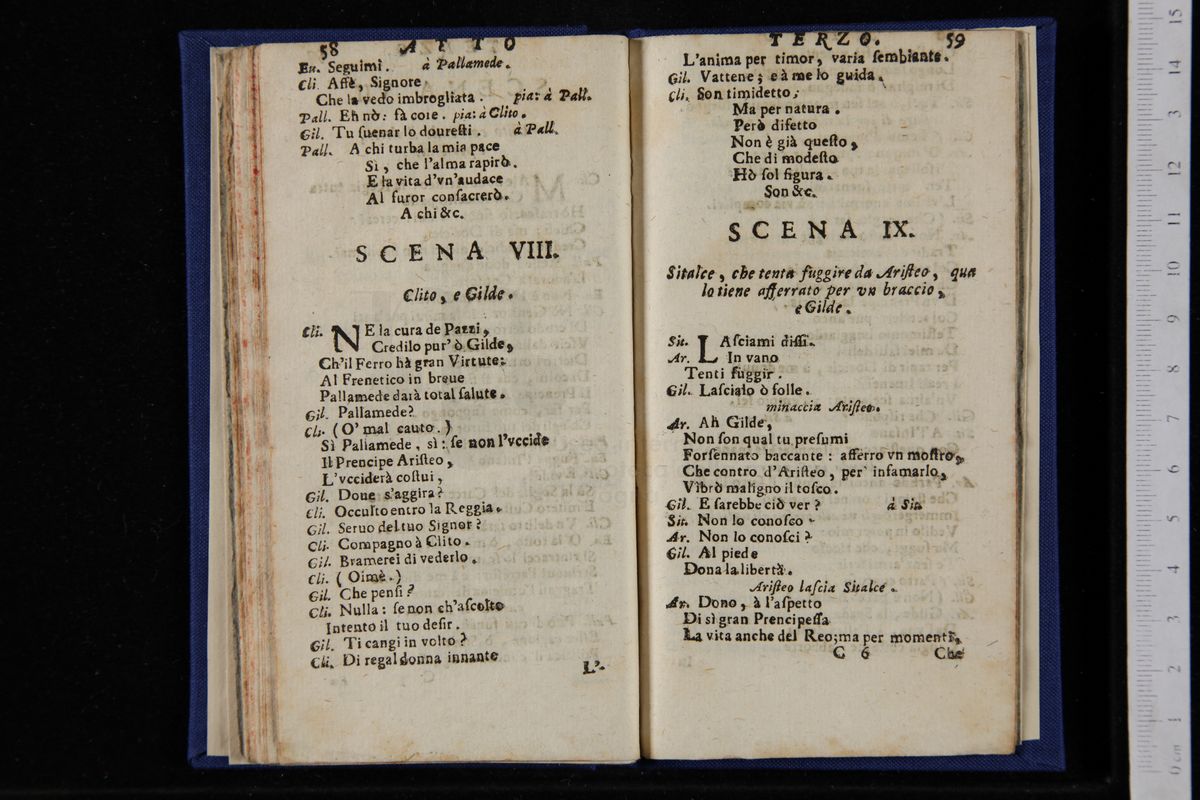 58 ATTO
En. Seguimi. à Pallamede.
Cli. Affè, Signore
Che la vedo imbrogliata. pia: à Pall.
Pall. Eh nò: fà core. pia: à Clito.
Gil. Tu suenar lo douresti. à Pall.
Pall. A chi turba la mia pace
Sì, che l'alma rapirò.
E la vita d'vn'audace
Al furor consacrerò.
A chi &c.
SCENA VIII.
Clito, e Gilde.
Cli. NE la cura de Pazzi,
Credilo pur' ò Gilde,
Ch'il Ferro hà gran Virtute:
Al Frenetico in breue
Pallamede darà total salute.
Gil. Pallamede?
Cli. (O' mal cauto.)
Sì Pallamede, sì: se non l'vccide
Il Prencipe Aristeo,
L'vcciderà costui,
Gil. Doue s'aggira?
Cli. Occulto entro la Reggia.
Gil. Seruo del tuo Signor?
Cli. Compagno à Clito.
Gil. Bramerei di vederlo.
Cli. (Oimè.)
Gil. Che pensi?
Cli. Nulla: se non ch'ascolto
Intento il tuo desir.
Gil. Ti cangi in volto?
Cli. Di regal donna innante
L'-
TERZO. 59
L'anima per timor, varia sembiante.
Gil. Vattene; e à me lo guida.
Cli. Son timidetto;
Ma per natura.
Però difetto
Non è già questo,
Che di modesto
Hò sol figura.
Son &c.
SCENA IX.
Sitalce, che tenta fuggire da Aristeo, qua
lo tiene afferrato per vn braccio,
e Gilde.
Sit. LAsciami dissi.
Ar. In vano
Tenti fuggir.
Gil. Lascialo ò folle.
minaccia Aristeo.
Ar. Ah Gilde,
Non son qual tu presumi
Forsennato baccante: afferro vn mostro,
Che contro d'Aristeo, per' infamarlo,
Vibrò maligno il tosco.
Gil. E sarebbe ciò ver? à Sit.
Sit. Non lo conosco
Ar. Non lo conosci?
Gil. Al piede
Dona la libertà.
Aristeo lascia Sitalce.
Ar. Dono, à l'aspetto
Di sì gran Prencipessa
La vita anche del Reo; ma per momenti,
C 6 Che